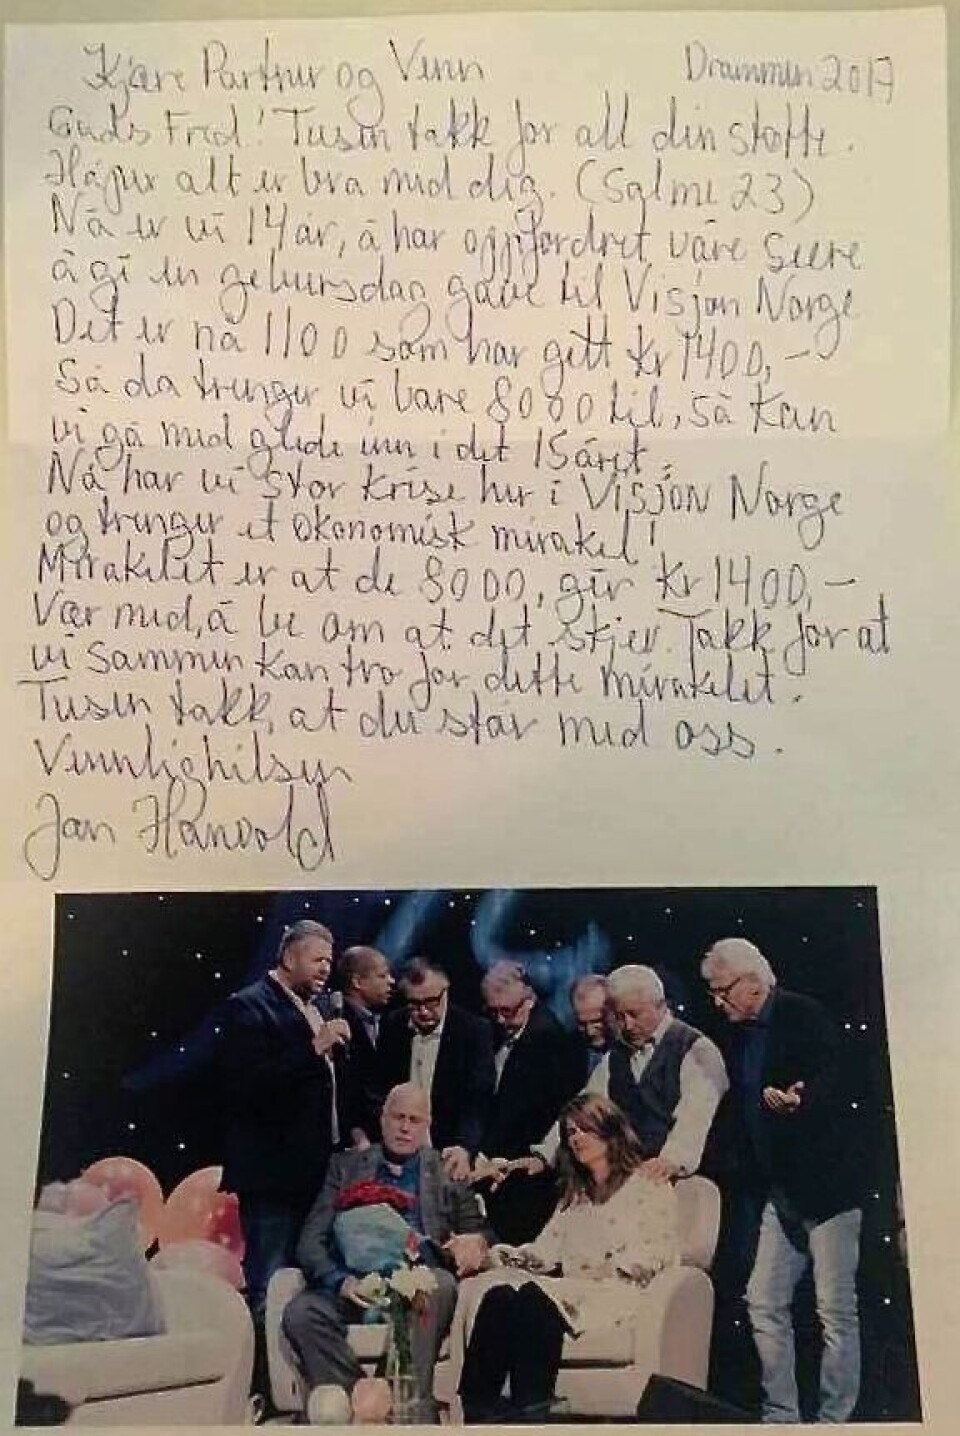 Kjære Partner og Venn Drammen 2017
Guds Fred! Tusen takk for all din støtte.
Håper alt er bra med dig. (Salme 23)
Nå er vi 14 år, å har oppfordret våre Seere
å gi en gebursdag gave til Visjon Norge
Det er nå 1100 som har gett kr 1400,-
Så da trenger vi bare 8000 til, så kan
vi gå med glede inn i det 15 året.
Nå har vi stor krise her i Visjon Norge
og trenger et økonomisk mirakel!
Mirakelet er at de 8000, gir kr 1400,-
Vær med, å be om at det skjer. Takk for at
vi sammen kan tro for dette mirakelet.
Tusen takk, at du står med oss.
Vennlighilsen
Jan Hanvold